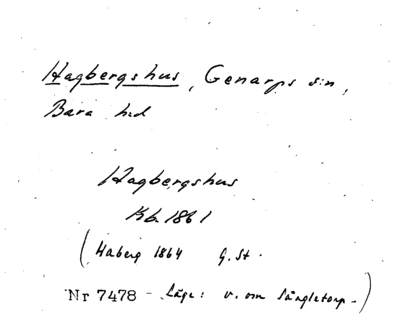 Hagbergshus, Genarps sn,
Bara hd
Hagbergshus
Kb 1861
(Haberg 1864 G. St.
Nr 7478 - Läge: v. om Sångletorp-)